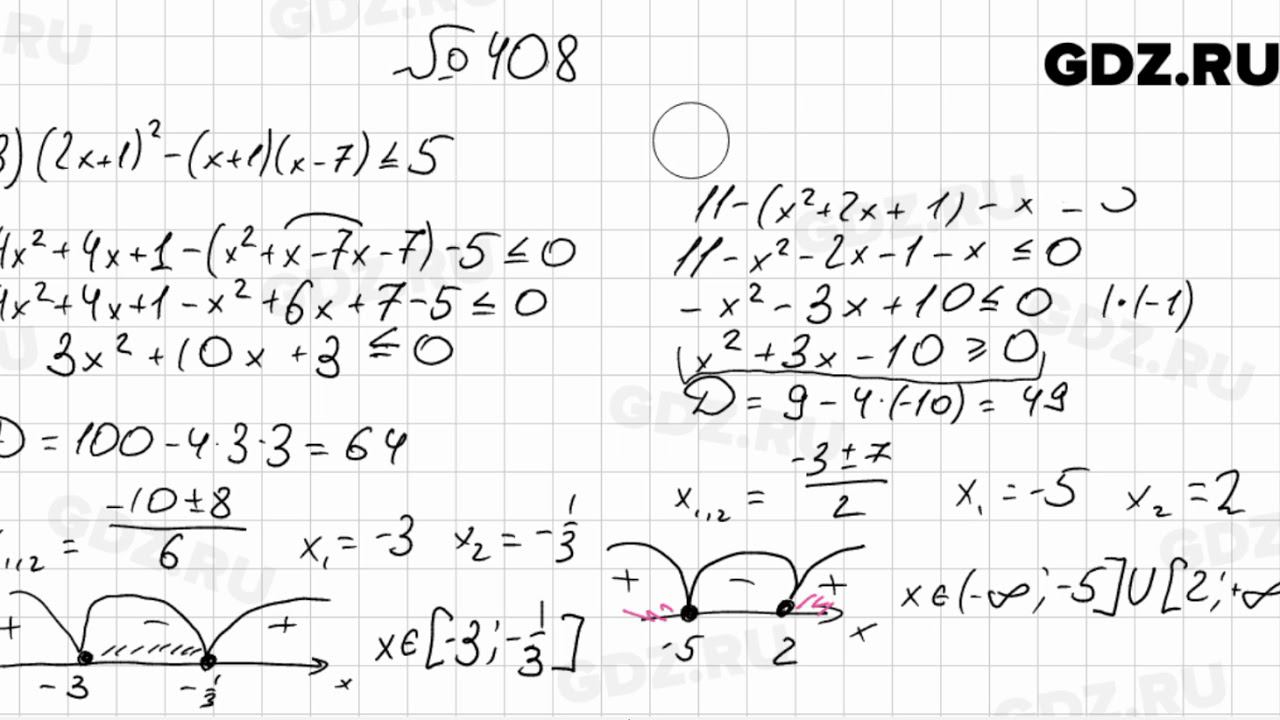 № 408
GDZ.RU
3) (2x+1)² - (x+1)(x-7) ≤ 5
4x² + 4x + 1 - (x² + x - 7x - 7) - 5 ≤ 0
4x² + 4x + 1 - x² + 6x + 7 - 5 ≤ 0
3x² + 10x + 3 ≤ 0
D = 100 - 4·3·3 = 64
x₁,₂ = (-10 ± 8)/6 x₁ = -3 x₂ = -1/3
+ - +
-3 -1/3 x
x ∈ [-3; -1/3]
11 - (x² + 2x + 1) - x
11 - x² - 2x - 1 - x ≤ 0
-x² - 3x + 10 ≤ 0 |·(-1)
x² + 3x - 10 ≥ 0
D = 9 - 4·(-10) = 49
x₁,₂ = (-3 ± 7)/2 x₁ = -5 x₂ = 2
+ - +
-5 2 x
x ∈ (-∞; -5] ∪ [2; +∞